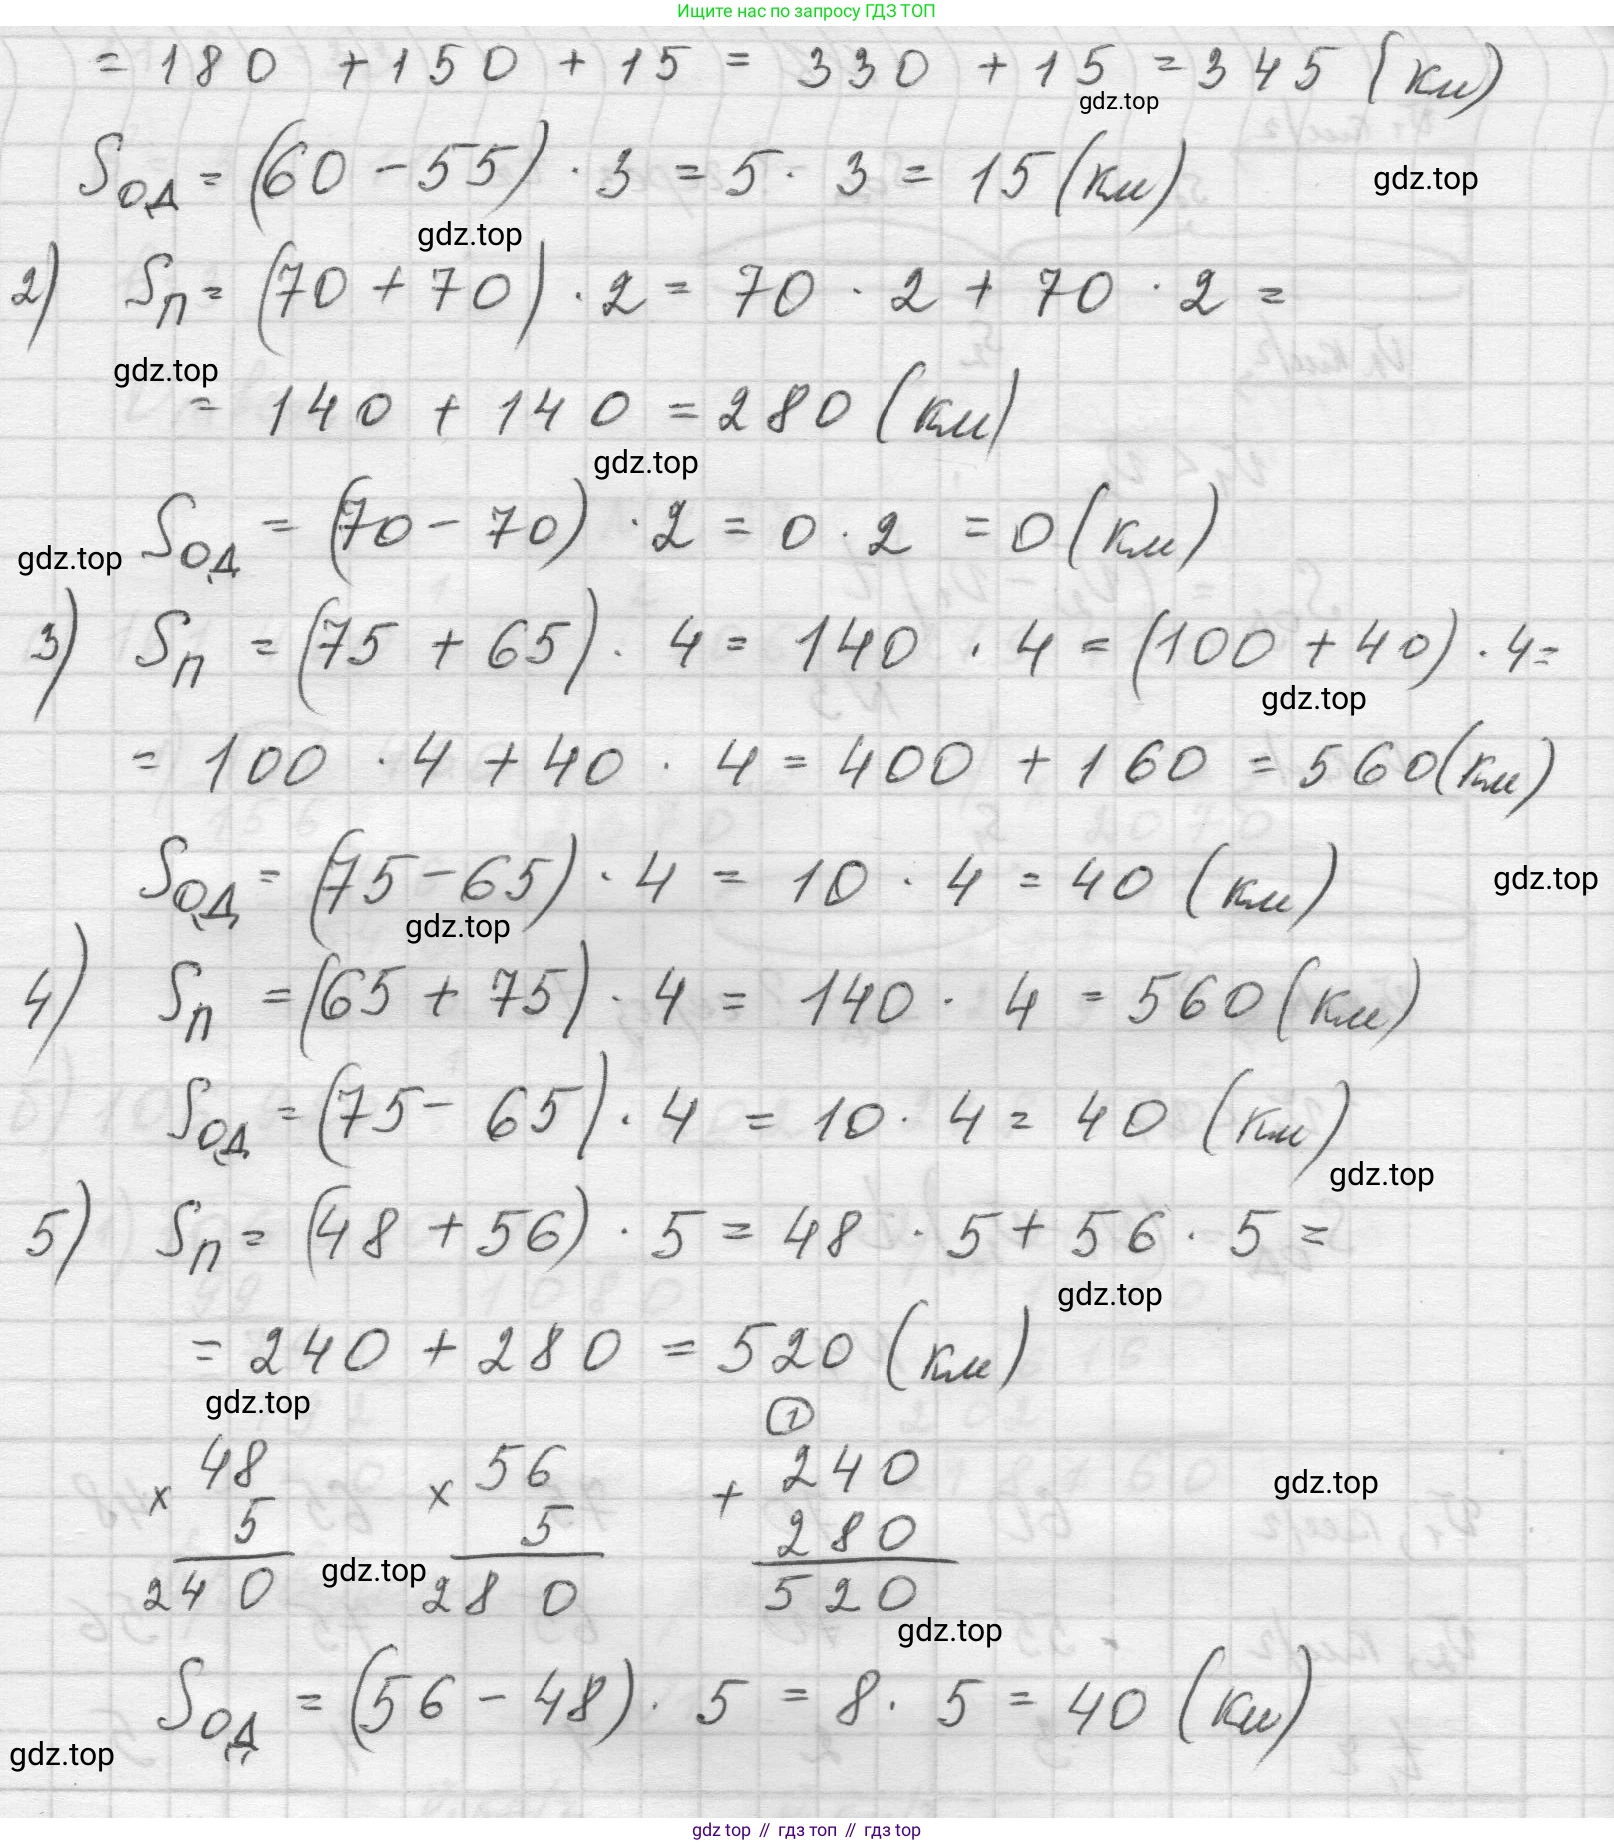 Ищите нас по запросу ГДЗ ТОП
= 180 + 150 + 15 = 330 + 15 = 345 (км)
gdz.top
Sод = (60 - 55) · 3 = 5 · 3 = 15 (км)
gdz.top
gdz.top
2) Sп = (70 + 70) · 2 = 70 · 2 + 70 · 2 =
gdz.top
= 140 + 140 = 280 (км)
gdz.top
Sод = (70 - 70) · 2 = 0 · 2 = 0 (км)
gdz.top
3) Sп = (75 + 65) · 4 = 140 · 4 = (100 + 40) · 4 =
gdz.top
= 100 · 4 + 40 · 4 = 400 + 160 = 560 (км)
Sод = (75 - 65) · 4 = 10 · 4 = 40 (км)
gdz.top
gdz.top
4) Sп = (65 + 75) · 4 = 140 · 4 = 560 (км)
Sод = (75 - 65) · 4 = 10 · 4 = 40 (км)
gdz.top
5) Sп = (48 + 56) · 5 = 48 · 5 + 56 · 5 =
gdz.top
= 240 + 280 = 520 (км)
gdz.top
1
48 56 240
× × +
gdz.top
5 5 280
gdz.top
240 280 520
gdz.top
Sод = (56 - 48) · 5 = 8 · 5 = 40 (км)
gdz.top
gdz top // гдз топ // гдз top